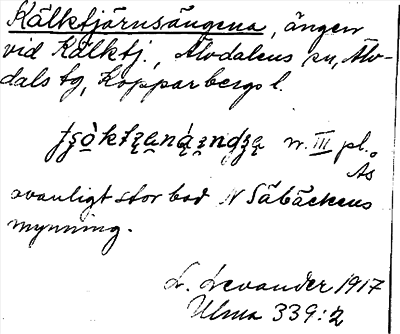 Kälktjärnsängena, ängen
vid Kälktj., Älvdalens sn, Älv-
dals tg, Kopparbergs l.
n. III pl.
Ås
ovanligt stor bod N Säbäckens
mynning.
L. Levander 1917
Ulma 339:2